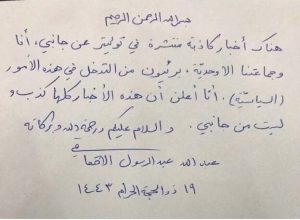 بسم الله الرحمن الرحيم
هناك أخبار كاذبة منتشرة في تويتر عن جانبي، أنا
وجماعتنا الأوحدية، بريئون من التدخل في هذه الأمور
(السياسية). أنا أعلن أن هذه الأخبار كلها كذب و
ليست من جانبي. والسلام عليكم ورحمة الله وبركاته
عبد الله عبد الرسول
١٩ ذو الحجة الحرام ١٤٤٣